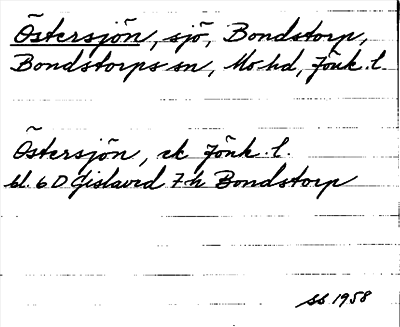 Östersjön, sjö, Bondstorp,
Bondstorps sn, Mo hd, Jönk. l.
Östersjön, ek Jönk. l.
bl. 6 D Gislaved 7 h Bondstorp
SS 1958